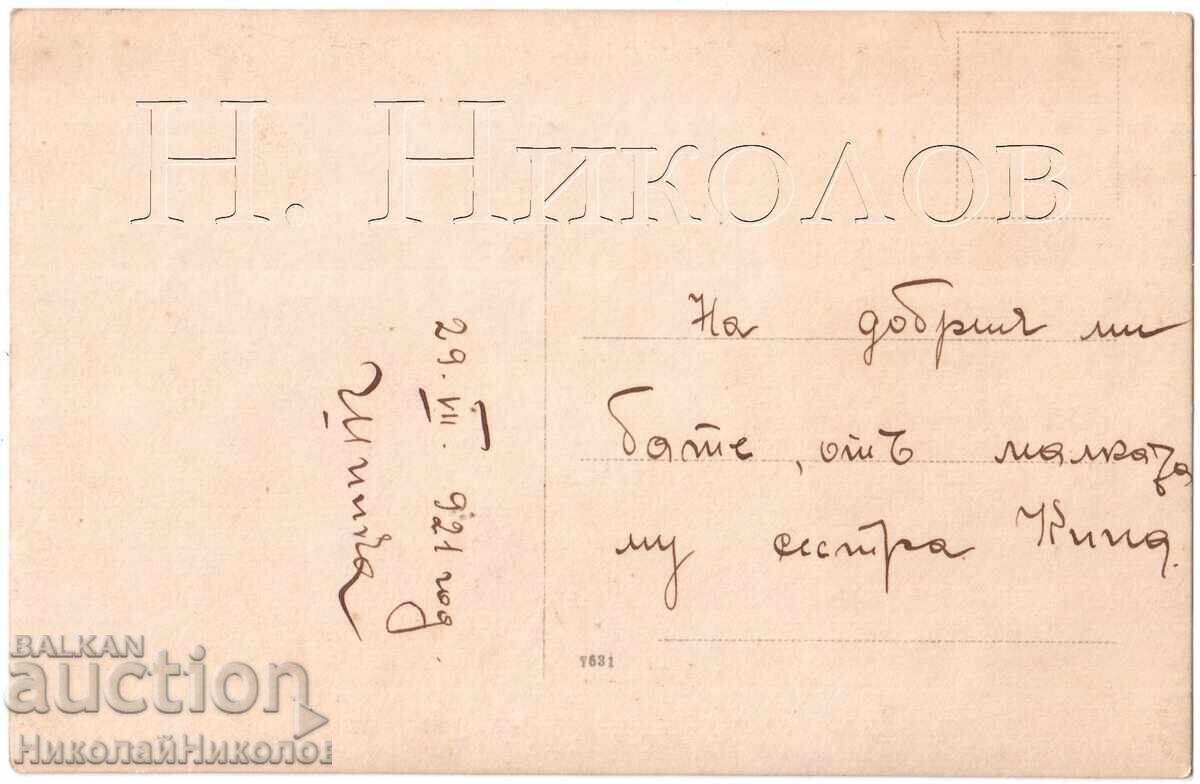 Н. Николов
На добрия ми
бате, отъ малката
му сестра Кина.
29. VII. 921 год.
7631
BALKAN
auction
НиколайНиколов